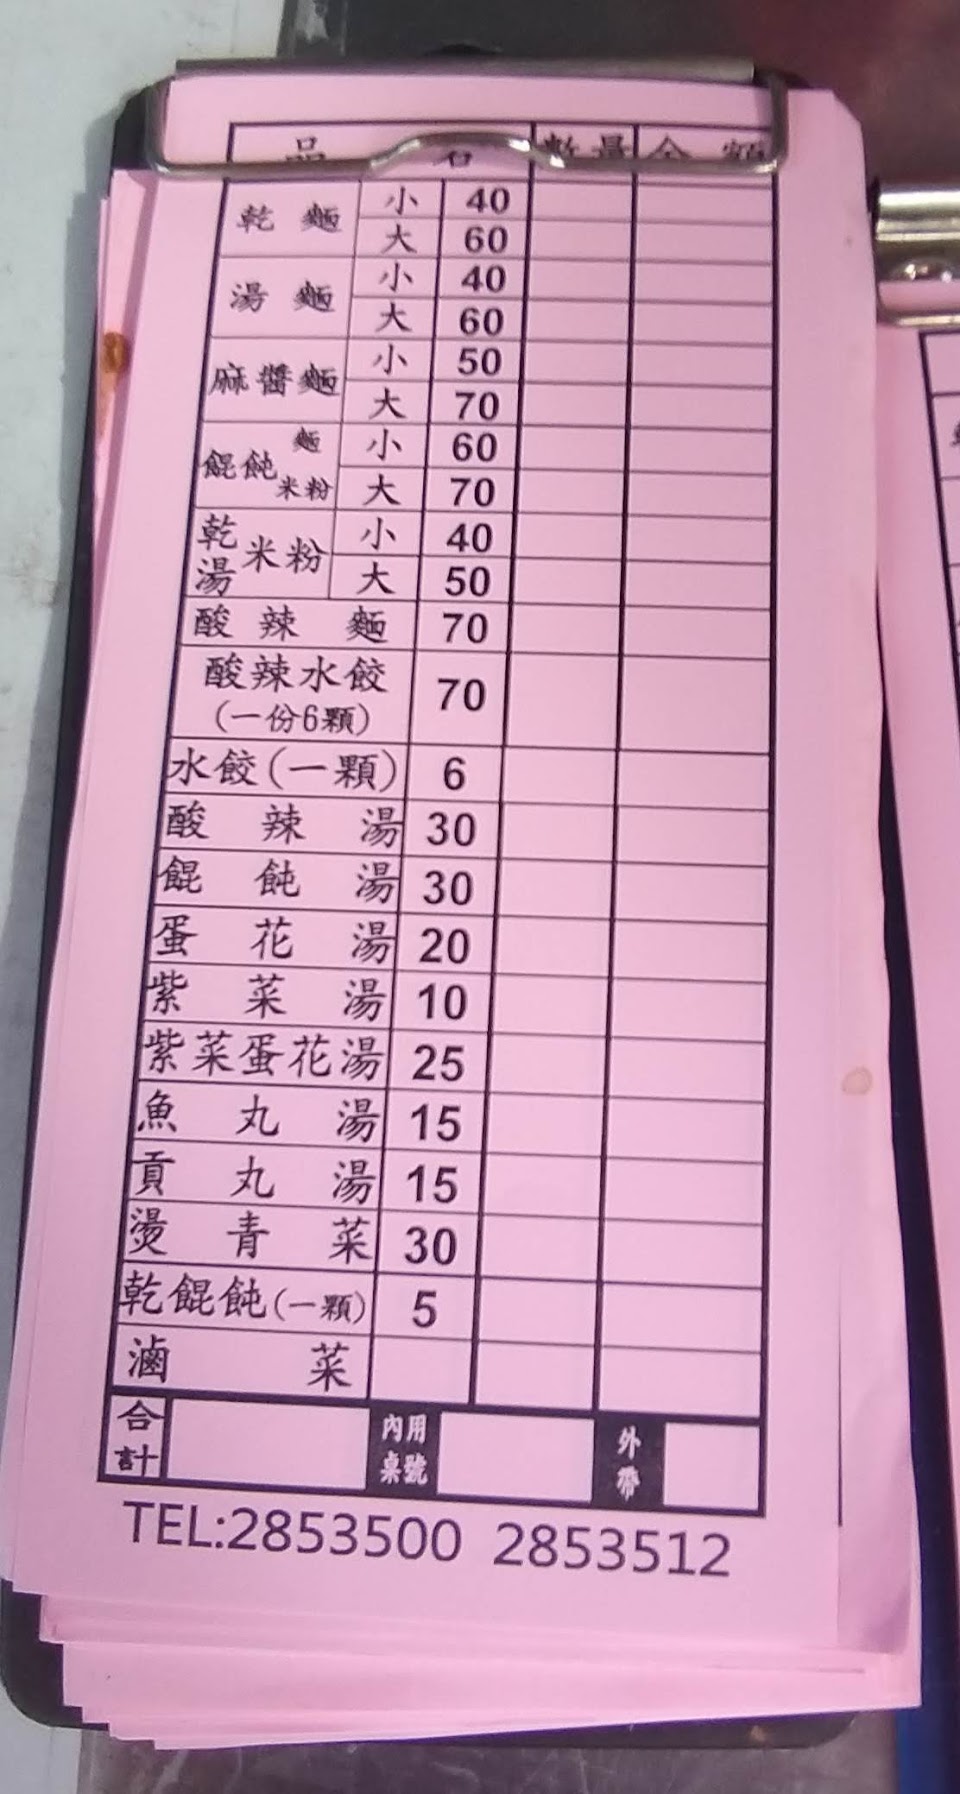 品 名 數量 金 額
乾 麵 小 40
大 60
湯 麵 小 40
大 60
麻醬麵 小 50
大 70
餛飩 麵 小 60
米粉 大 70
乾 米粉 小 40
湯 大 50
酸 辣 麵 70
酸辣水餃 70
(一份6顆)
水餃(一顆) 6
酸 辣 湯 30
餛 飩 湯 30
蛋 花 湯 20
紫 菜 湯 10
紫菜蛋花湯 25
魚 丸 湯 15
貢 丸 湯 15
燙 青 菜 30
乾餛飩(一顆) 5
滷 菜
合計 內用桌號 外帶
TEL:2853500 2853512